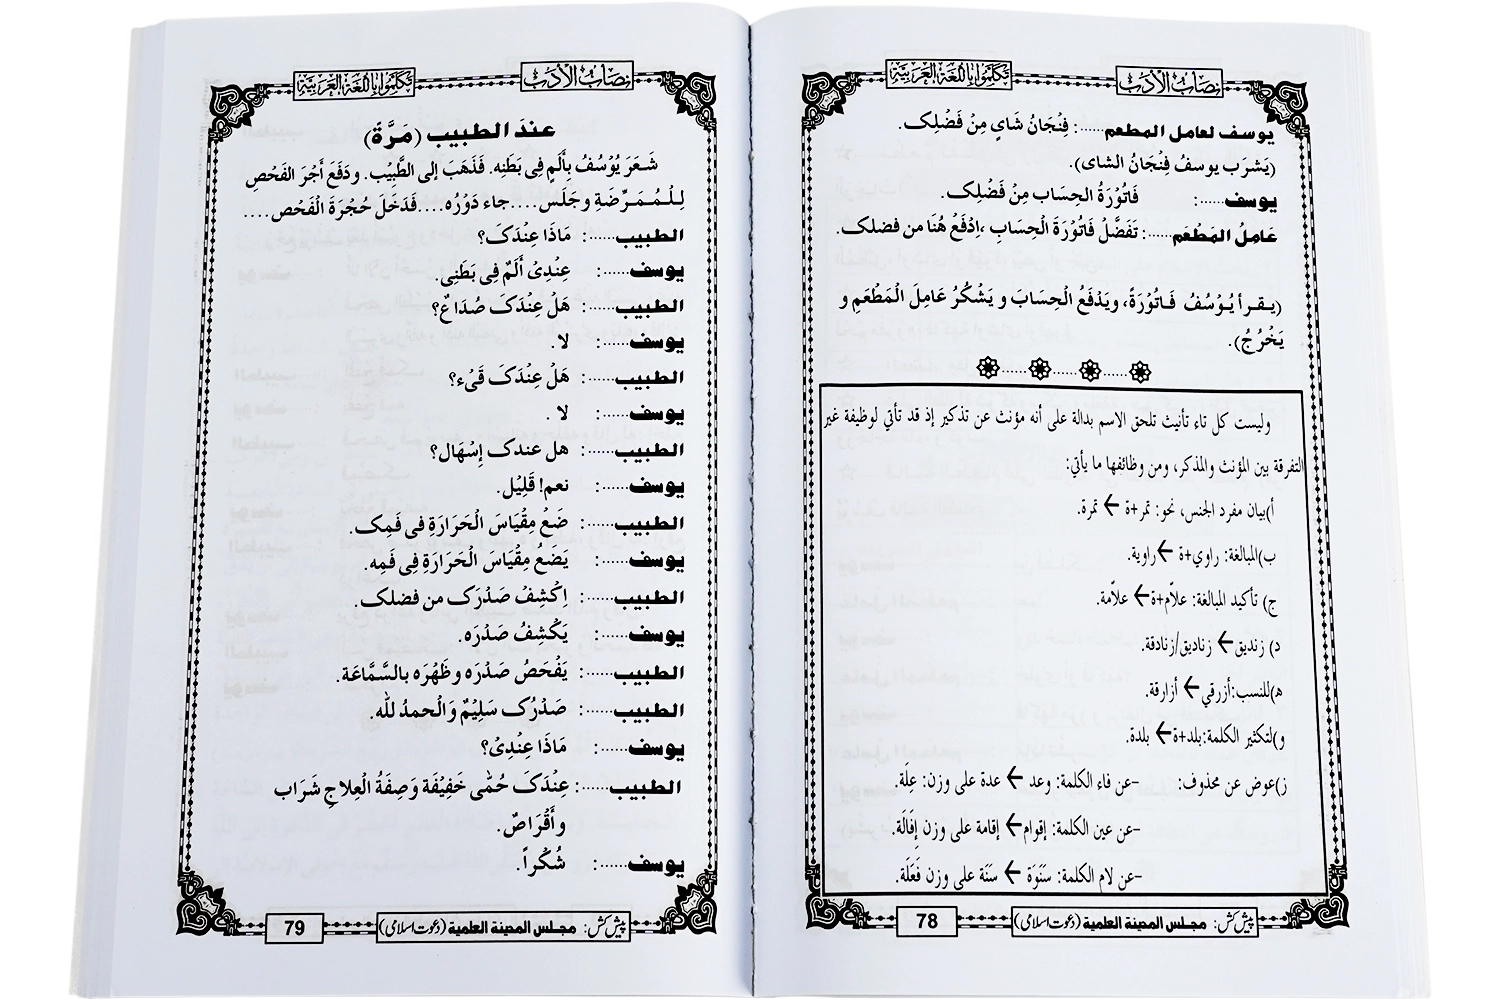 نصاب الأدب
تکلموا باللغة العربية
يوسف لعامل المطعم......: فِنْجَانُ شَايٍ مِنْ فَضْلِک.
(يَشْرَب يوسفُ فِنْجَانُ الشای).
يوسف......: فَاتُوْرَةُ الحِسَاب مِنْ فَضْلِک.
عَامِلُ المَطْعَم......: تَفَضَّلُ فَاتُوْرَةَ الْحِسَابِ ،اِدْفَعْ هُنَا من فضلک.
(يـقـرأ يُـوْسُفُ فَـاتُوْرَةً، ويَدْفَعُ الْحِسَابَ و يَشْکُرُ عَامِلَ الْمَطْعَمِ و
يَخْرُجُ).
وليست كل تاء تأنيث تلحق الاسم بدالة على أنه مؤنث عن تذكير إذ قد تأتي لوظيفة غير
التفرقة بين المؤنث والمذكر، ومن وظائفها ما يأتي:
أ)بيان مفرد الجنس، نحو: تمر+ة ← تمرة.
ب)المبالغة: راوي+ة ← راوية.
ج) تأكيد المبالغة: علاّم+ة← علاّمة.
د) زنديق← زناديق/زنادقة.
ه)للنسب:أزرقي← أزارقة.
و)لتكثير الكلمة:بلد+ة← بلدة.
ز)عوض عن محذوف: -عن فاء الكلمة: وعد← عدة على وزن: عِلَة.
-عن عين الكلمة: إقوام← إقامة على وزن إفَالَة.
-عن لام الكلمة: سَنَوَة ← سنَة على وزن فَعَلَة.
پیش کش: مجلس المدينة العلمية (دعوت اسلامی)
78
نصاب الأدب
تکلموا باللغة العربية
عندَ الطبيب (مَرَّةً)
شَعَرَ يُوْسُفُ بِأَلَمٍ فِی بَطْنِه. فَذَهَبَ إلی الطَّبِيْب. ودَفَعَ أجْرَ الفَحْصِ
لِلْمُمَرِّضَةِ و جَلَس....جاء دَوْرُه....فَدَخَلَ حُجْرَةَ الْفَحْص....
الطبيب......: مَاذَا عِنْدَکَ؟
يوسف......: عِنْدِیْ أَلَمٌ فِی بَطْنِی.
الطبيب......: هَلْ عِنْدَکَ صُدَاعٌ؟
يوسف......: لا.
الطبيب......: هَلْ عِنْدَکَ قَیْء؟
يوسف......: لا .
الطبيب......: هل عندک إسْهَال؟
يوسف......: نعم! قَلِيْل.
الطبيب......: ضَعْ مِقْيَاسَ الْحَرَارَةِ فی فَمِک.
يوسف......: يَضَعُ مِقْيَاسَ الْحَرَارَةِ فی فَمِه.
الطبيب......: اِکْشِفْ صَدْرَک من فضلک.
يوسف......: يَکْشِفُ صَدْرَه.
الطبيب......: يَفْحَصُ صَدْرَه و ظَهْرَه بالسَّمَّاعَة.
الطبيب......: صَدْرُک سَلِيْمٌ وَالْحمدُ لله.
يوسف......: مَاذَا عِنْدِیْ؟
الطبيب......: عِنْدَکَ حُمّٰی خَفِيْفَة وَصِفَةُ الْعِلاجِ شَرَاب
وأَقْرَاصٌ.
يوسف......: شُکْراً.
پیش کش: مجلس المدينة العلمية (دعوت اسلامی)
79